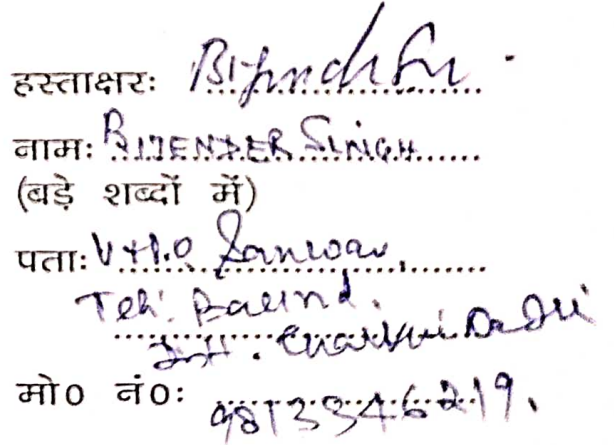 हस्ताक्षरः
नामः BIJENDER SINGH
(बड़े शब्दों में)
पताः V+P.O Sanwar
Teh. Baund.
Distt. Charkhi Dadri
मो0 नं0ः 9813346219.